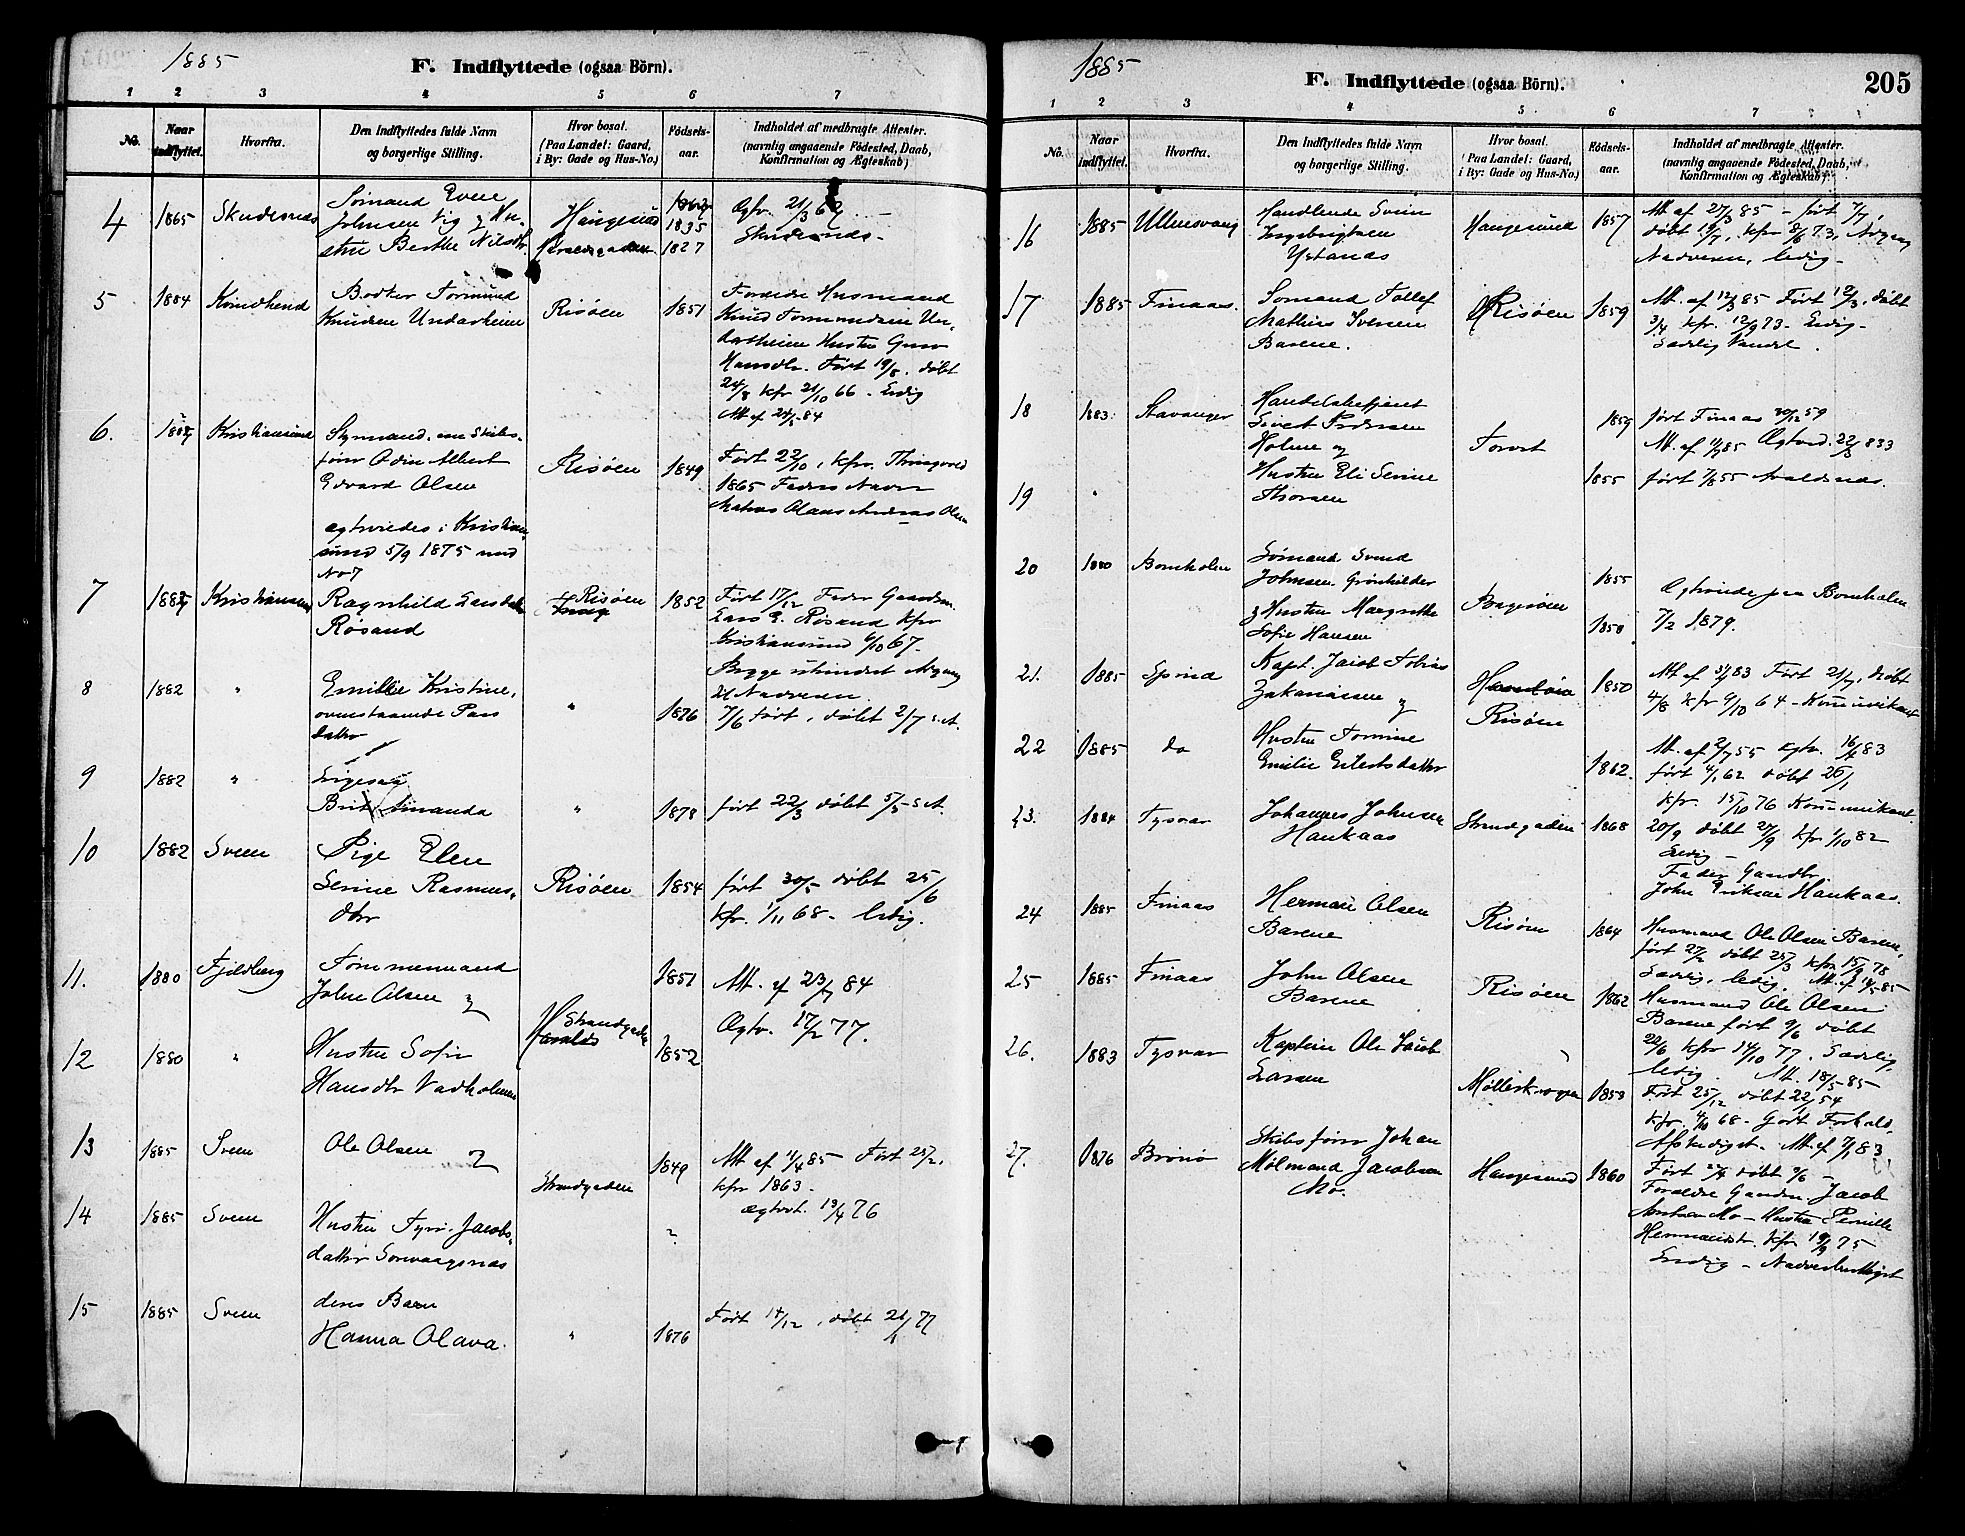 1885
F. Indflyttede (ogsaa Börn).
1 2 3 4 5 6 7
No.
Naar indflyttet.
Hvorfra.
Den Indflyttedes fulde Navn og borgerlige Stilling.
Hvor bosat. (Paa Landet: Gaard, i By: Gade og Hus-No.)
Fødsels-aar.
Indholdet af medbragte Attester. (navnlig angaaende Födested, Daab, Konfirmation og Ægteskab)
4 1865 Skudesnæs
Sømand
Johnsen Vig og Hu-
stru Berthe Nilsdtr.
Haugesund
1835
1827
Ægtv. 21/3 62
Skudesnæs
5 1884
Bødker Tormund
Knudsen Undarheim
Risøen 1851
Forældre Husmand
Knud Tormundsen Un-
darheim Hustru
Hansdtr. Født 19/8. døbt
24/8 kfr 21/10 66. Ledig
6. Kristiansund
Styrmand, nu Skibs-
fører Odin Albert
Edvard Olsen
Risøen 1849
Født 22/10, kfr. Thingvold
1865 Faders Navn
Olaus Andreas Olsen
ægtviedes i Kristian-
sund 5/9 1875 med
No 7
7 Kristiansund
Ragnhild Larsdatter
Røsand
Risøen 1852
Født 17/12 Fader Gaardm.
Lars E. Røsand kfr
Kristiansund 6/10 67.
Begge uhindret Adgang
til Nadveren
8 1882 "
Emilie Kristine,
ovenstaaende Pars
datter
" 1876
7/6 født, døbt 2/7 s.A.
9 1882 "
Ligesaa
Amanda
" 1878
født 22/3 døbt 5/5 s.A.
10 1882 Sveen
Pige Elen
Serine Rasmus-
dtr
Risøen 1854
født 30/5 døbt 25/6
kfr. 1/11 68 - ledig.
11. 1880 Fjeldberg
Tømmermand
John Olsen og
Strandgaden
1851
Att. af 23/7 84
Ægtv. 17/2 77.
12 1880 "
Hustru Sofie
Hansdtr Vadholmen
1852
13 1885 Sveen
Ole Olsen og
1849
Att af 11/4 85 Født 25/2.
kfr 1863.
ægtvet. 13/4 76
Strandgaden
14 1885 Sveen
Hustru Jacobs-
datter
15 1885 Sveen
deres Barn
Hanna Olava.
" 1876
Født 14/12, døbt 21/1 77
1885
F. Indflyttede (ogsaa Börn). 205
1 2 3 4 5 6 7
No.
Naar indflyttet.
Hvorfra.
Den Indflyttedes fulde Navn og borgerlige Stilling.
Hvor bosat. (Paa Landet: Gaard, i By: Gade og Hus-No.)
Fødsels-aar.
Indholdet af medbragte Attester. (navnlig angaaende Födested, Daab, Konfirmation og Ægteskab)
16 1885 Ullensvang
Handlende Svein
Ingebrigtsen
Ystanæs
Haugesund 1857
Att af 27/3 85 - født 7/7,
døbt 19/7, kfr 8/6 73, Adgang
Nadveren, ledig -
17 1885 Finaas.
Sømand Tollef
Mathias Iversen
Barene.
Risøen 1859
Att. af 12/3 85 Født 12/3, døbt
3/4 kfr. 12/9 73 - Ledig -
Sædelig Vandel.
18 1883 Stavanger
Handelsbetjent
Sivert Pedersen
Holme og
Torvet
1859
født Finaas 30/12 59
19 "
Hustru Eli Serine
Thorsen
1855
født 7/8 55 Avaldsnæs.
20 1880 Bornholm
Sømand Svend
Johnsen Grønhilder
og Hustru Margrethe
Sofie Hansen
1855
1850
Ægtviede paa Bornholm
7/2 1879.
21. 1885 Spind
Kapt. Jacob Tobias
Zakariasen og
Risøen 1850
Født 21/7, døbt
4/8 kfr 9/10 64 - Kommunikant
22 1885 do
Hustru Tomine
Emilie Eilertsdatter
1862.
Ægtv. 16/4 83
født 4/1 62 døbt 26/1
kfr. 15/10 76 Kommunikant.
23. 1884 Tysvær
Johannes Johnsen
Haukaas
Strandgaden 1868
20/9 døbt 27/9 kfr 1/10 82
Ledig -
Fader Gaardbr.
John Eriksen Haukaas.
24 1885 Finaas
Herman Olsen
Barene
Risøen 1864
Husmand Ole Olsen Barene,
født 27/2 døbt 25/3 kfr 15/9 78
Sædelig, ledig. Att. af 14/5 85
25 1885 Finaas
John Olsen
Barene
Risøen 1862
Husmand Ole Olsen
Barene født 9/6 døbt
22/6 kfr 14/10 77, Sædelig,
ledig. Att. 18/5 85
26. 1883 Tysvær
Kaptein Ole Jacob
Larsen
1853
Født 25/12 døbt 22/1 54
kfr. 4/10 68 - gjort Forholds-
Afskediget. Att. af 7/1 83
27. 1876 Brønø
Skibsfører Johan
Mølmand Jacobsen
Mo.
Haugesund 1860
Født døbt
Forældre Gaardm. Jacob
Mo - Hustru Pernille
kfr 19/9 75
Ledig - Nadverberettiget